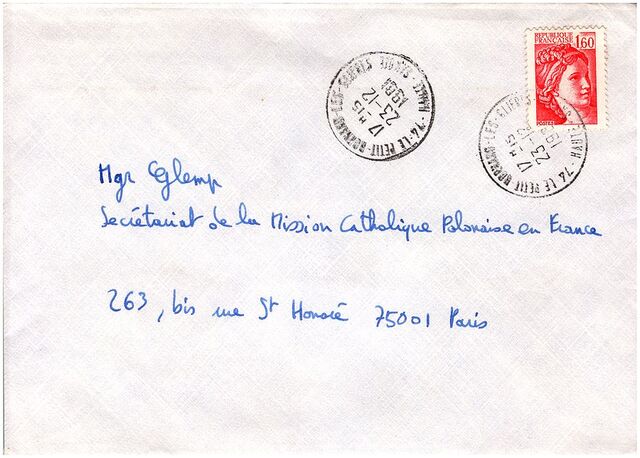 REPUBLIQUE
FRANÇAISE
1,60
74 LE PETIT-BORNAND-LES-GLIERES HAUTE SAVOIE
17 H 15
23-12
1981
74 LE PETIT-BORNAND-LES-GLIERES HAUTE
17 H 15
23
1981
Mgr Glemp
Secrétariat de la Mission Catholique Polonaise en France
263, bis rue St Honoré 75001 Paris